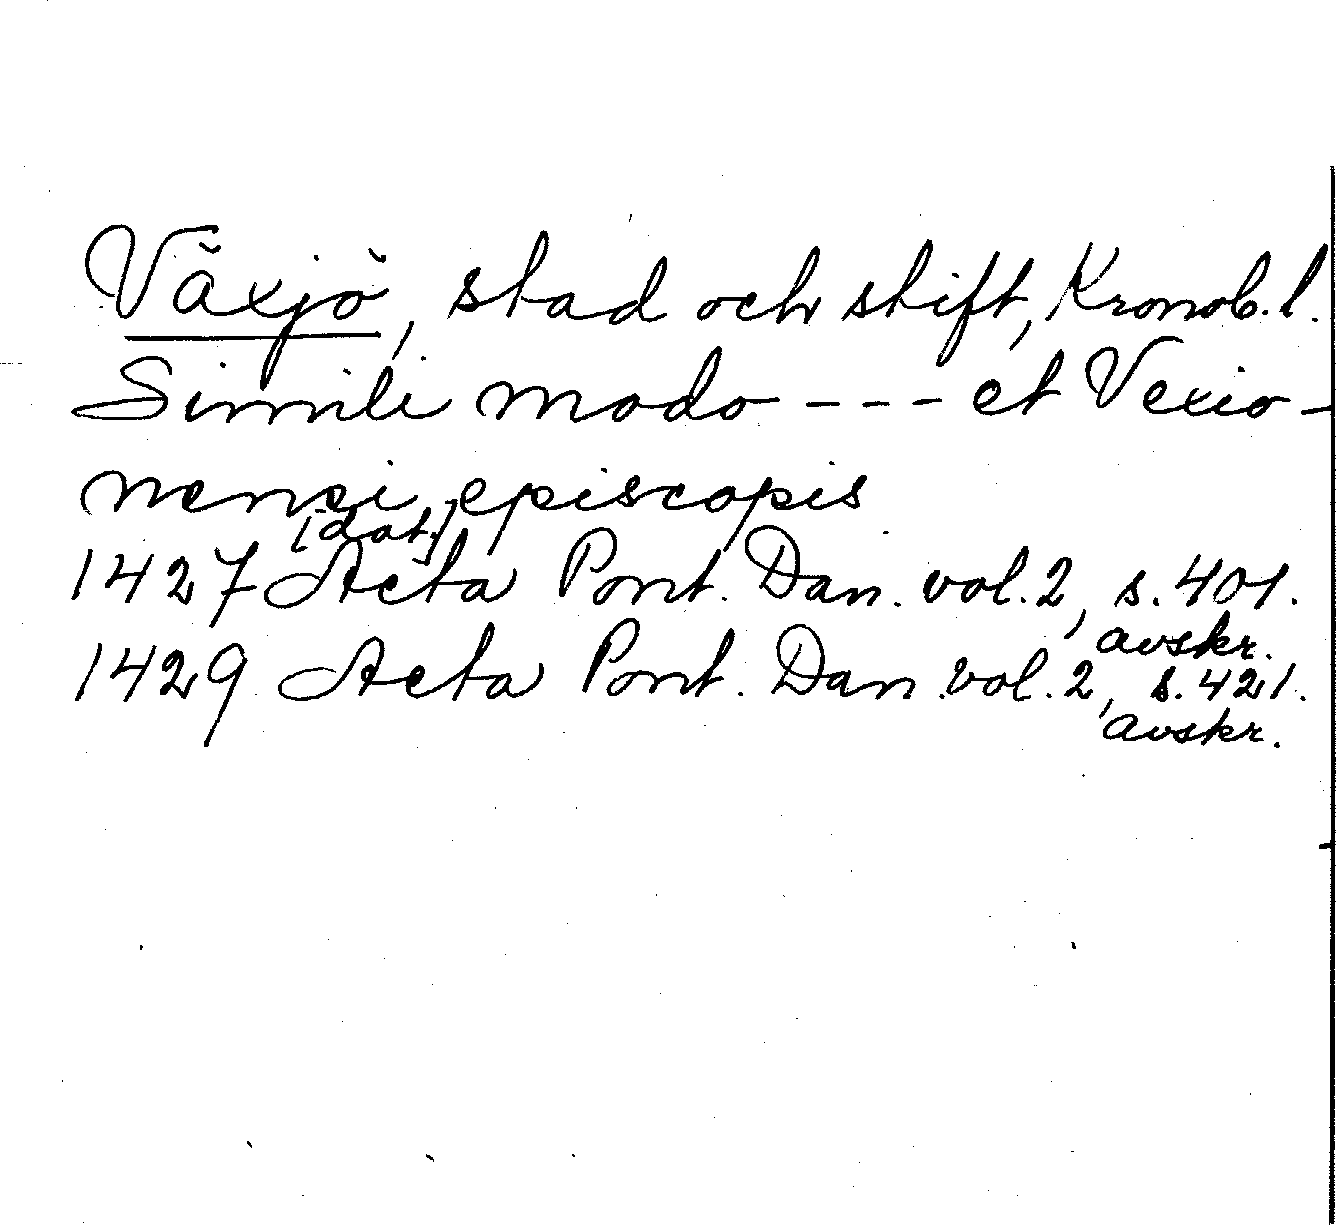 Växjö, stad och stift, Kronob. l.
Simili modo --- et Vexio-
nensi episcopis
[dat.]
1427 Acta Pont. Dan. vol. 2, s. 401.
avskr.
1429 Acta Pont. Dan. vol. 2, s. 421.
avskr.